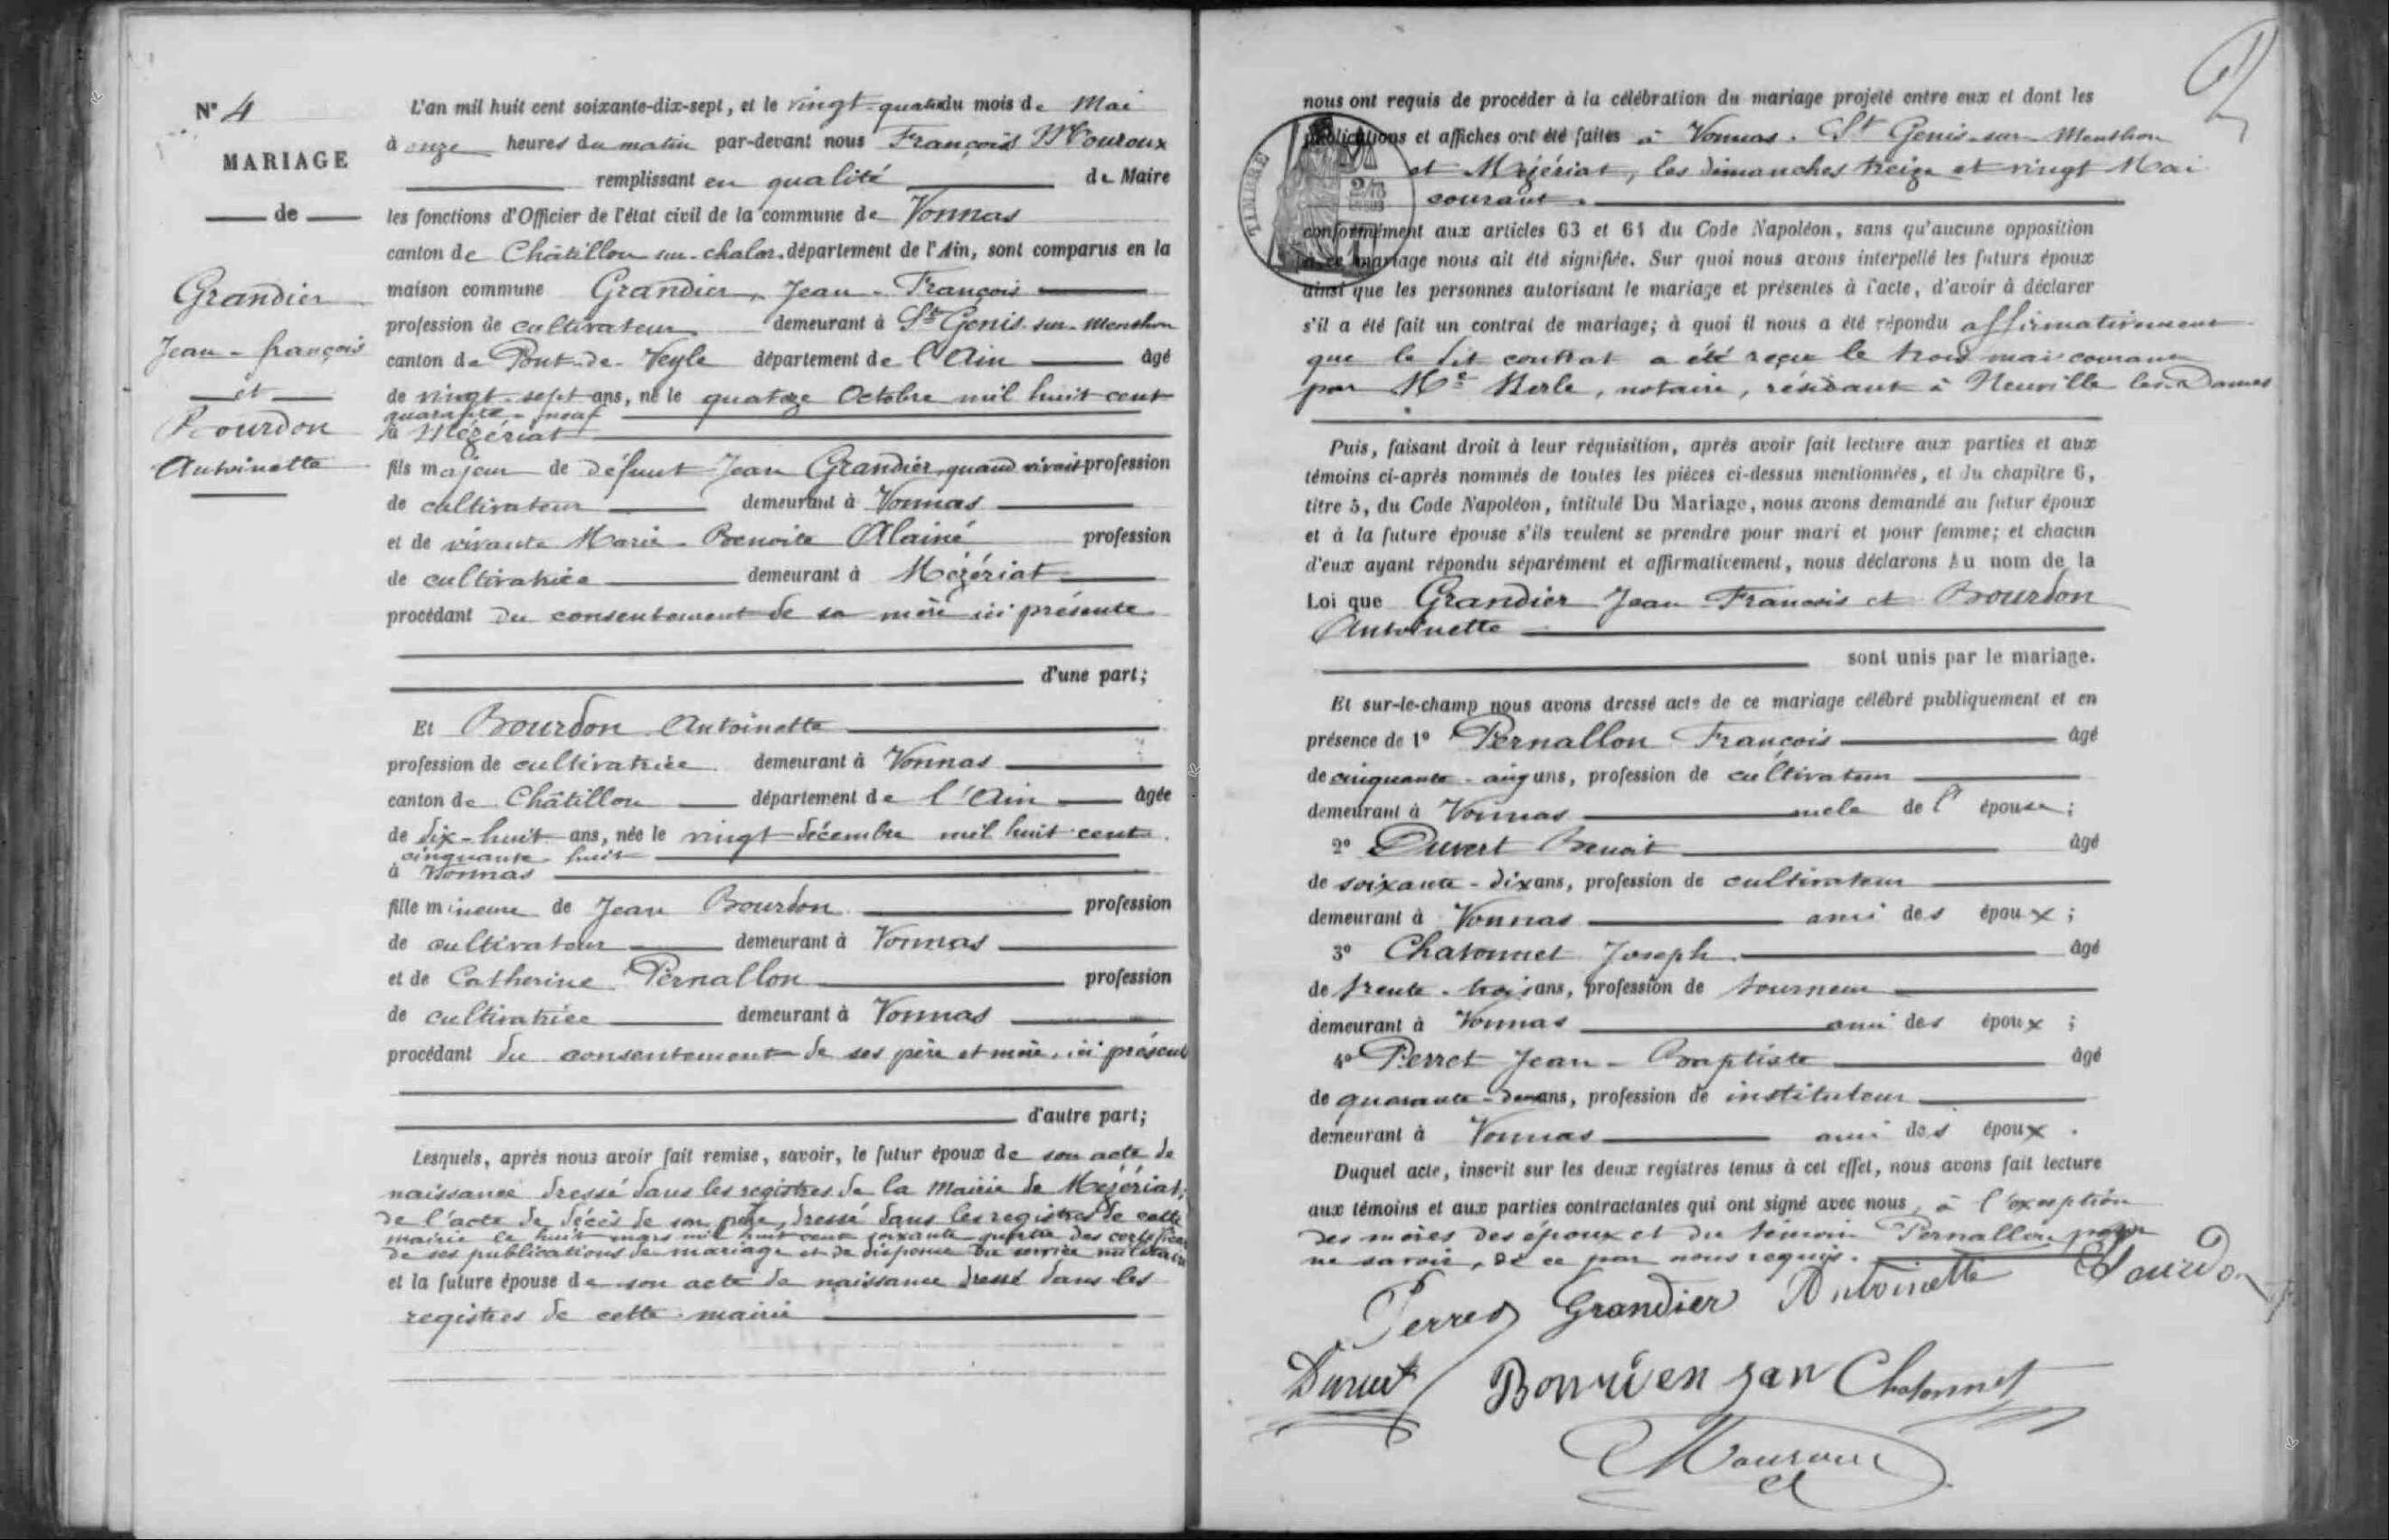 N° 4
MARIAGE
de
Grandier
Jean-françois
et
Bourdon
Antoinette
L'an mil huit cent soixante-dix-sept, et le vingt-quatre du mois de Mai
à onze heures du matin par-devant nous François Mouroux
remplissant en qualité de Maire
les fonctions d'Officier de l'état civil de la commune de Vonnas
canton de Châtillon-sur-chalar. département de l'Ain, sont comparus en la
maison commune Grandier, Jean-François
profession de cultivateur demeurant à St Genis-sur-Menthon
canton de Pont-de-Veyle département de l'Ain âgé
de vingt-sept ans, né le quatorze Octobre mil huit cent
quarante-neuf
à Mézériat
fils majeur de défunt Jean Grandier quand vivait profession
de cultivateur demeurant à Vonnas
et de vivante Marie-Benoite Alainé profession
de cultivatrice demeurant à Mézériat
procédant du consentement de sa mère ici présente
d'une part;
Et Bourdon Antoinette
profession de cultivatrice demeurant à Vonnas
canton de Châtillon département de l'Ain âgée
de dix-huit ans, née le vingt décembre mil huit cent
cinquante-huit
à Vonnas
fille mineure de Jean Bourdon profession
de cultivateur demeurant à Vonnas
et de Catherine Pernallon profession
de cultivatrice demeurant à Vonnas
procédant du consentement de ses père et mère, ici présent
d'autre part;
Lesquels, après nous avoir fait remise, savoir, le futur époux de son acte de
naissance dressé dans les registres de la Mairie de Mézériat,
de l'acte de décès de son père, dressé dans les registres de cette
mairie le huit mars mil huit cent soixante quatre des certificats
de ses publications de mariage et de dispense du service militaire
et la future épouse de son acte de naissance dressé dans les
registres de cette mairie
nous ont requis de procéder à la célébration du mariage projeté entre eux et dont les
publications et affiches ont été faites à Vonnas. St Genis-sur-Menthon
et Mézériat, les dimanches treize et vingt Mai
courant.
TIMBRE
conformément aux articles 63 et 64 du Code Napoléon, sans qu'aucune opposition
à ce mariage nous ait été signifiée. Sur quoi nous avons interpellé les futurs époux
ainsi que les personnes autorisant le mariage et présentes à l'acte, d'avoir à déclarer
s'il a été fait un contrat de mariage; à quoi il nous a été répondu affirmativement
que le dit contrat a été reçu le trois mai courant
par Me Merle, notaire, résidant à Neuville les Dames
Puis, faisant droit à leur réquisition, après avoir fait lecture aux parties et aux
témoins ci-après nommés de toutes les pièces ci-dessus mentionnées, et du chapitre 6,
titre 5, du Code Napoléon, intitulé Du Mariage, nous avons demandé au futur époux
et à la future épouse s'ils veulent se prendre pour mari et pour femme; et chacun
d'eux ayant répondu séparément et affirmativement, nous déclarons Au nom de la
Loi que Grandier Jean-François et Bourdon
Antoinette
sont unis par le mariage.
Et sur-le-champ nous avons dressé acte de ce mariage célébré publiquement et en
présence de 1° Pernallon François âgé
de cinquante-cinq ans, profession de cultivateur
demeurant à Vonnas oncle de l'épouse;
2° Duvert Benoit âgé
de soixante-dix ans, profession de cultivateur
demeurant à Vonnas ami des époux;
3° Chatonnet Joseph âgé
de trente-trois ans, profession de tourneur
demeurant à Vonnas ami des époux;
4° Perret Jean-Baptiste âgé
de quarante-deux ans, profession de instituteur
demeurant à Vonnas ami des époux.
Duquel acte, inscrit sur les deux registres tenus à cet effet, nous avons fait lecture
aux témoins et aux parties contractantes qui ont signé avec nous, à l'exception
des mères des époux et du témoin Pernallon pour
ne savoir, de ce par nous requis.
Perret Grandier Antoinette Bourdon
Duvert Chatonnet
Mouroux